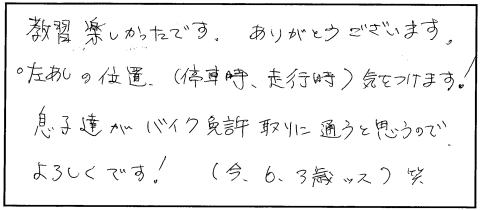 教習楽しかったです。ありがとうございます。
○左あしの位置、(停車時、走行時)気をつけます!
息子達がバイク免許取りに通うと思うので、
よろしくです! (今、6、3歳ッス)笑